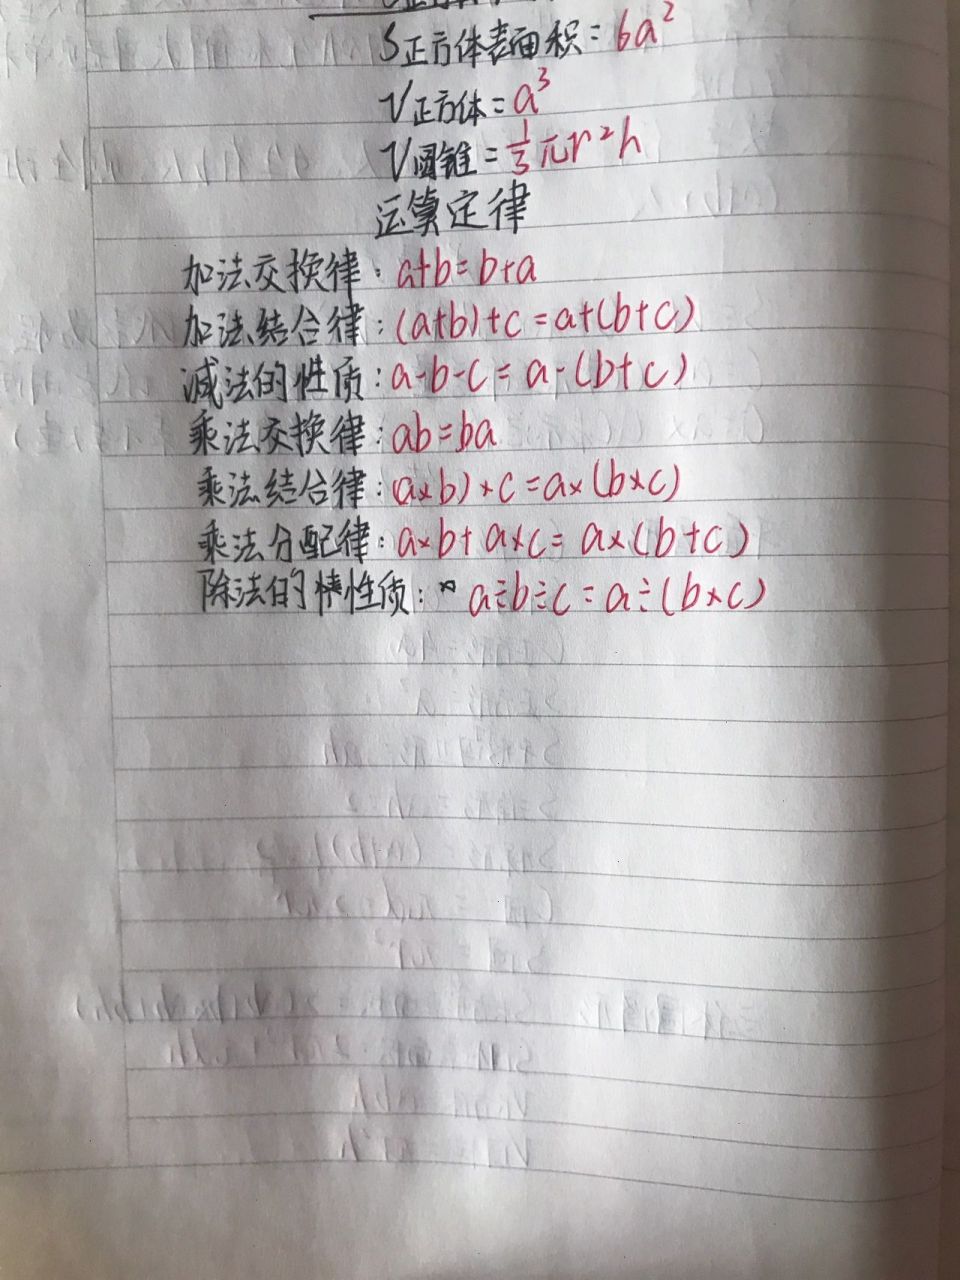 S正方体表面积=6a²
V正方体=a³
V圆锥=1/3πr²h
运算定律
加法交换律:a+b=b+a
加法结合律:(a+b)+c=a+(b+c)
减法的性质:a-b-c=a-(b+c)
乘法交换律:ab=ba
乘法结合律:(a×b)×c=a×(b×c)
乘法分配律:a×b+a×c=a×(b+c)
除法的性质:a÷b÷c=a÷(b×c)